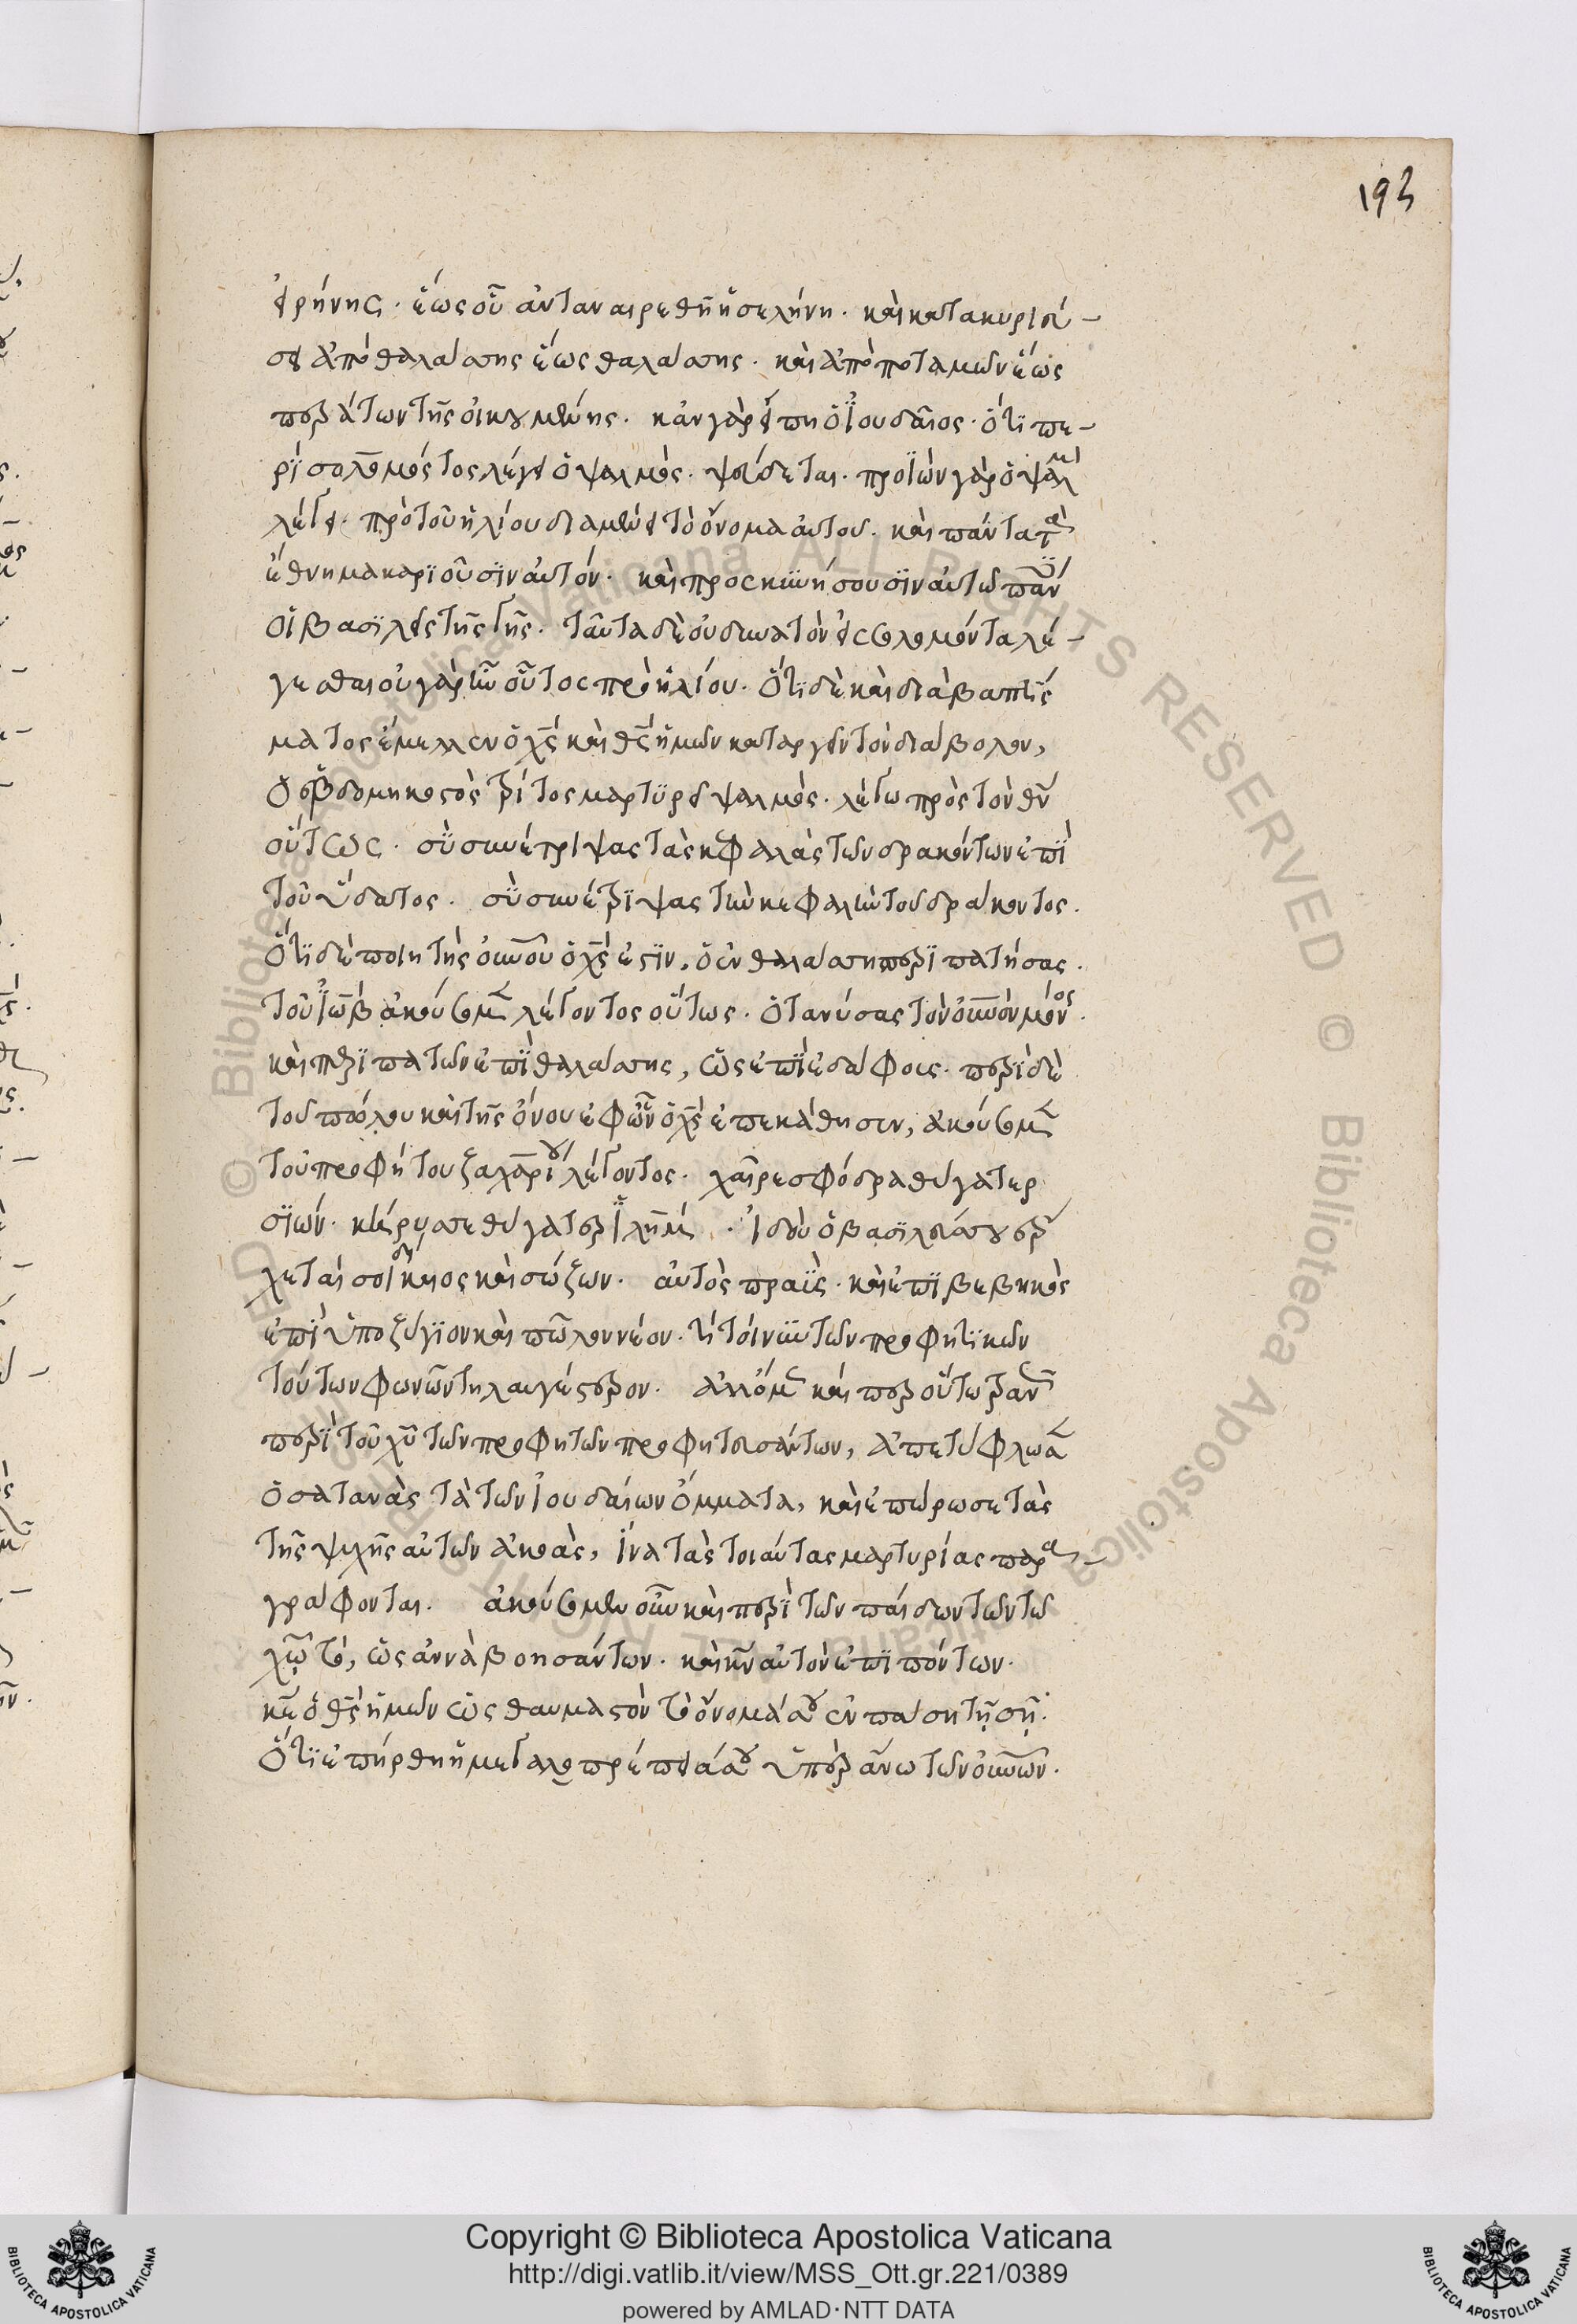 193
εἰρήνης· ἕως οὗ ἀνταναιρεθῇ ἡ σελήνη· καὶ κατακυριεύ-
σει ἀπὸ θαλάσσης ἕως θαλάσσης· καὶ ἀπὸ ποταμῶν ἕως
περάτων τῆς οἰκουμένης· κἂν γὰρ εἴπη ὁ Ἰουδαῖος· ὅτι πε-
ρὶ σολομόντος λέγει ὁ ψαλμός· ψεύδεται· προϊὼν γὰρ ὁ ψαλμ
λέγει· πρὸ τοῦ ἡλίου διαμένει τὸ ὄνομα αὐτοῦ· καὶ πάντα τὰ
ἔθνη μακαριοῦσιν αὐτόν· καὶ προσκυνήσουσιν αὐτῶ πάν
οἱ βασιλεῖς τῆς γῆς· ταῦτα δὲ οὐ δυνατὸν εἰς σολομόντα λέ-
γεσθαι οὐ γὰρ ἦν οὗτος πρὸ ἡλίου· Ὅτι δὲ καὶ διὰ βαπτίσ
ματος ἔμελλεν ὁ χς καὶ θς ἡμῶν καταργεῖν τὸν διάβολον,
ὁ ἑβδομηκοστὸς τρίτος μαρτυρεῖ ψαλμός· λέγω πρὸς τὸν θν
οὕτως· σὺ συνέτριψας τὰς κεφαλὰς τῶν δρακόντων ἐπὶ
τοῦ ὕδατος· σὺ συνέτριψας τὴν κεφαλὴν τοῦ δράκοντος·
Ὅτι δὲ ποιητὴς οὐνοῦ ὁ χς ἐστιν, ὁ ἐν θαλάσση περιπατήσας·
τοῦ Ἰὼβ ἀκούσωμεν λέγοντος οὕτως· ὁ τανύσας τὸν οὐνὸν μόνος·
καὶ περιπατῶν ἐπὶ θαλάσσης, ὡς ἐπὶ ἐδάφους· περὶ δὲ
τοῦ πώλου καὶ τῆς ὄνου ἐφ ὧν ὁ χς ἐπεκάθησεν, ἀκούσωμεν
τοῦ προφήτου ζαχαρίου λέγοντος· χαῖρε σφόδρα θύγατερ
σιών· κήρυσσε θύγατερ ἰλημ· Ἰδοὺ ὁ βασιλεύς σου ἔρ
χεταί σοι δίκαιος καὶ σώζων· αὐτὸς πραῢς· καὶ ἐπιβεβηκὼς
ἐπὶ ὑποζύγιον καὶ πῶλον νέον· τί τοίνυν τῶν προφητικῶν
τούτων φωνῶν τηλαυγέστερον· ἀλλ ὅμως καίπερ οὕτω τραν
περὶ τοῦ χυ τῶν προφητῶν προφητευσάντων, ἀπετύφλωσεν
ὁ σατανὰς τὰ τῶν Ἰουδαίων ὄμματα, καὶ ἐπώρωσε τὰς
τῆς ψυχῆς αὐτῶν ἀκοάς, ἵνα τὰς τοιαύτας μαρτυρίας παρα-
γράφονται· ἀκούσωμεν οὖν καὶ περὶ τῶν παίδων τῶν τῶ
χω τό, ὡσαννὰ βοησάντων· καὶ κν αὐτὸν ἐπιπόντων·
κε ὁ θς ἡμῶν ὡς θαυμαστὸν τὸ ὄνομά σου ἐν πάση τῇ γῇ·
Ὅτι ἐπήρθη ἡ μεγαλοπρέπειά σου ὑπεράνω τῶν οὐνῶν·
Copyright © Biblioteca Apostolica Vaticana
http://digi.vatlib.it/view/MSS_Ott.gr.221/0389
powered by AMLAD·NTT DATA